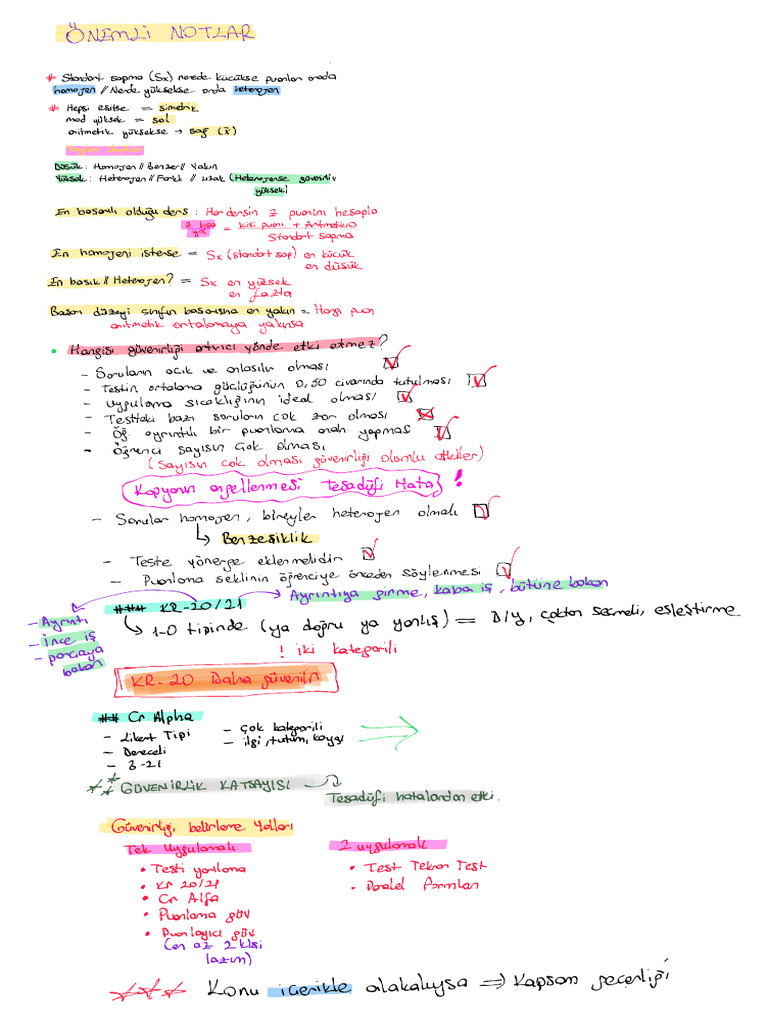 ÖNEMLİ NOTLAR
* Standart sapma (Sx) nerede küçükse puanlar orada
homojen // Nerde yüksekse orda heterojen
* Hepsi eşitse = simetrik
mod yüksek = sol
aritmetik yüksekse → sağ (x̄)
Düşük: Homojen // Benzer // Yakın
Yüksek: Heterojen // Farklı // Uzak (Heterojense güvenirlik
yüksek)
En başarılı olduğu ders: Her dersin z puanını hesapla
= kişi puanı + Aritmetik
Standart sapma
En homojeni isterse = Sx (standart sap) en küçük
en düşük
En basık // Heterojen? = Sx en yüksek
en fazla
Başarı düzeyi sınıfın başarısına en yakın = Hangi puan
aritmetik ortalamaya yakınsa
• Hangisi güvenirliği artırıcı yönde etki etmez?
- Soruların açık ve anlaşılır olması
- Testin ortalama güçlüğünün 0,50 civarında tutulması
- Uygulama sıcaklığının ideal olması
- Testteki bazı soruların çok zor olması
- Öğ ayrıntılı bir puanlama anah yapması
- Öğrenci sayısın çok olması
(Sayısın çok olması güvenirliği olumlu etkiler)
Kopyanın engellenmesi Tesadüfi Hata !
- Sorular homojen, bireyler heterojen olmalı
↳ Benzeşiklik
- Teste yönerge eklenmelidir
- Puanlama şeklinin öğrenciye önceden söylenmesi
### KR-20/21 → Ayrıntıya girme, kaba iş, bütüne bakan
- Ayrıntı
- İnce iş
- parçaya
bakan
↳ 1-0 tipinde (ya doğru ya yanlış) = D/Y, çoktan seçmeli, eşleştirme
! iki kategorili
! KR-20 Daha güvenilir
## Cr Alpha
- Likert Tipi
- Dereceli
- 3-21
- Çok kategorili
- ilgi, tutum, kaygı
** GÜVENİRLİK KATSAYISI →
Tesadüfi hatalardan etki.
Güvenirliği belirleme Yolları
Tek Uygulamalı
• Testi yarılama
• KR 20/21
• Cr Alfa
• Puanlama güv
• Puanlayıcı güv
(en az 2 kişi
lazım)
2 uygulamalı
• Test Tekrar Test
• Paralel Formlar
*** Konu içerikle alakalıysa => Kapsam geçerliği